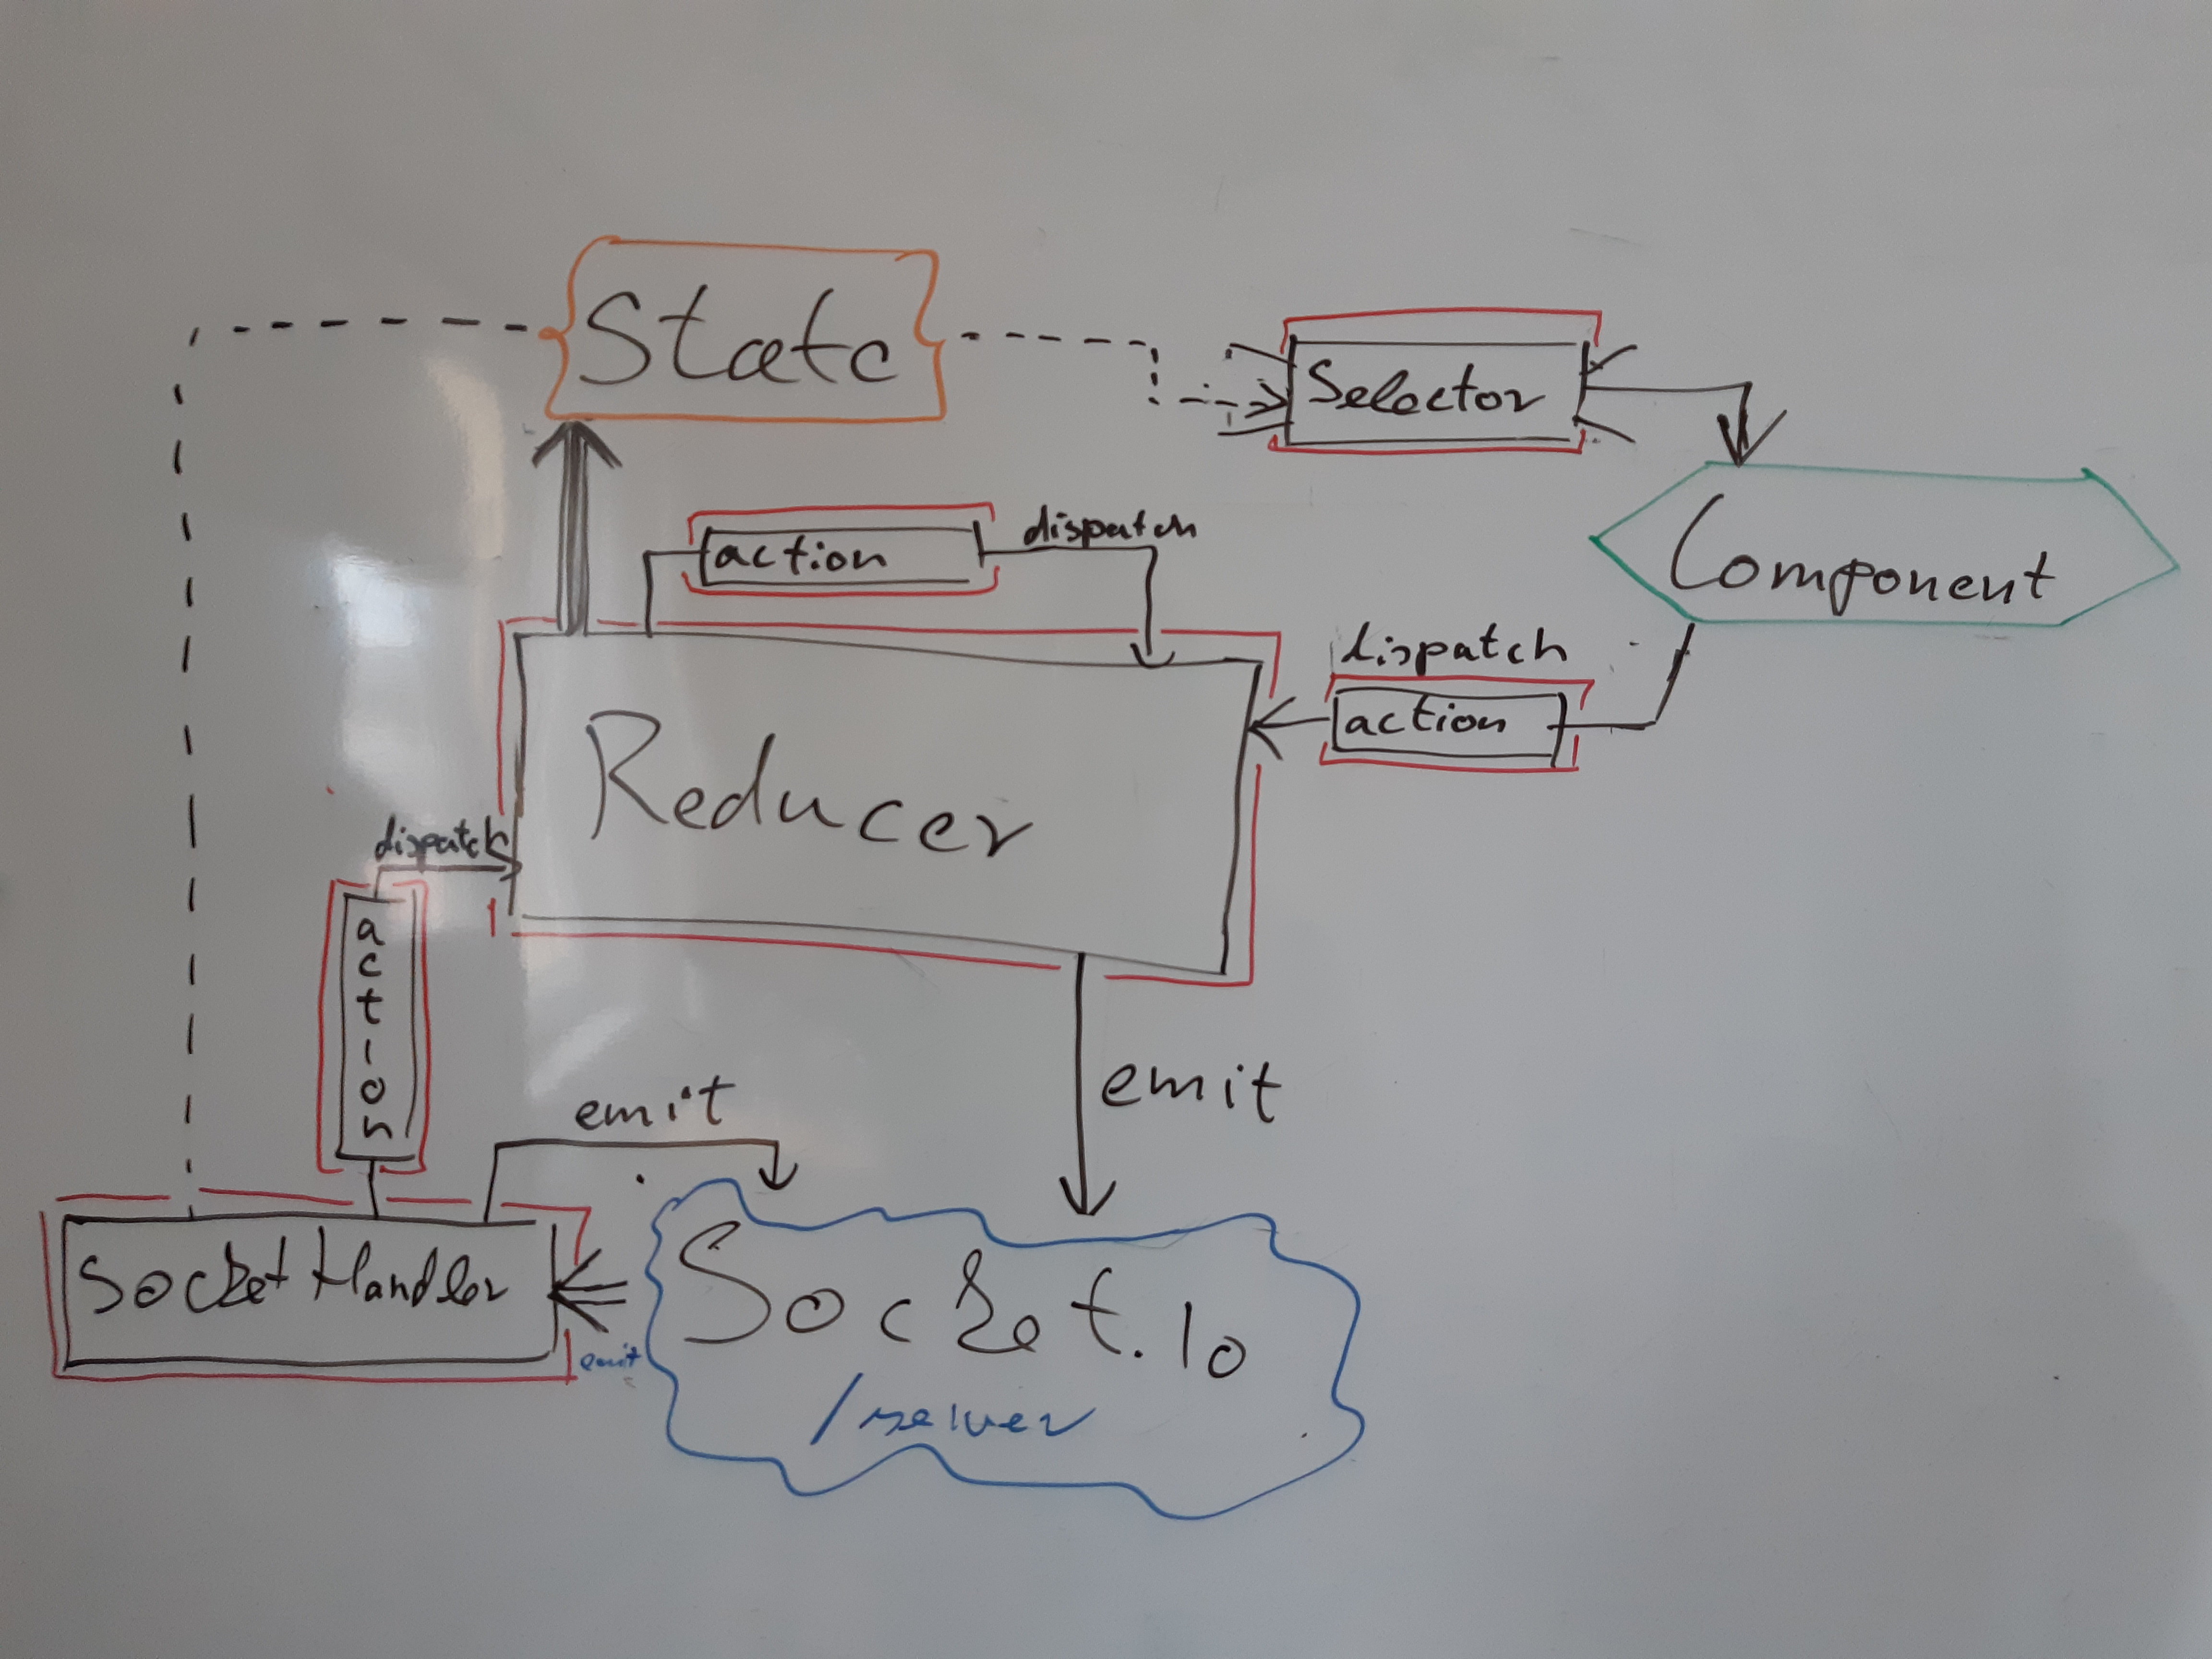 State
Selector
action
dispatch
Component
dispatch
action
Reducer
dispatch
action
emit
emit
Socket Handler
emit
Socket.Io
/server